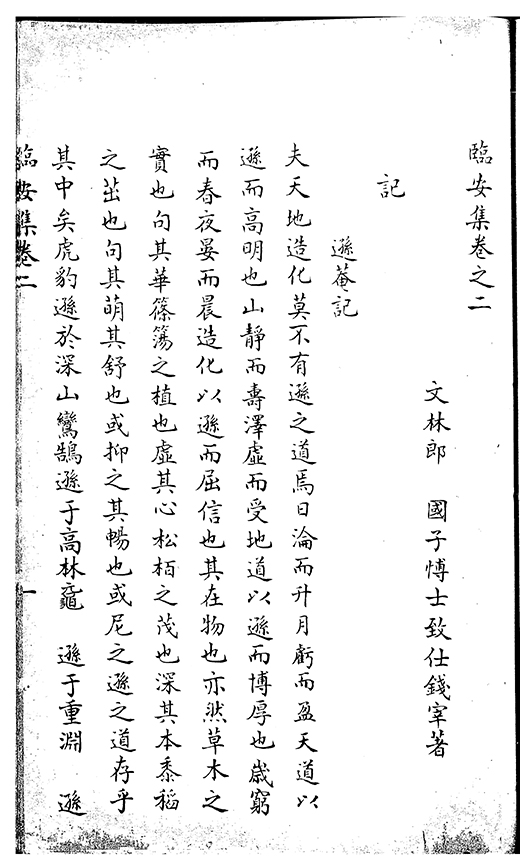 臨安集卷之二
文林郎 國子博士致仕錢宰著
記
遜菴記
夫天地造化莫不有遜之道焉日淪而升月虧而盈天道以
遜而高明也山靜而壽澤虛而受地道以遜而博厚也歲窮
而春夜晏而晨造化以遜而屈信也其在物也亦然草木之
實也句其華篠簜之植也虛其心松栢之茂也深其本黍稻
之茁也句其萌其舒也或抑之其暢也或尼之遜之道存乎
其中矣虎豹遜於深山鸞鵠遜于高林 遜于重淵 遜
臨安集卷二 一